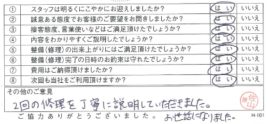 ① スタッフは明るくにこやかにお迎えしましたか? はい いいえ
② 誠意ある態度でお客様のご要望をお聞きしましたか? はい いいえ
③ 接客態度、言葉使いなどはご満足頂けたでしょうか? はい いいえ
④ 内容をわかりやすくご説明したでしょうか? はい いいえ
⑤ 整備(修理)の出来上がりにはご満足頂けたでしょうか? はい いいえ
⑥ 整備(修理)完了の日時のお約束は守れたでしょうか? はい いいえ
⑦ 費用はご納得頂けましたか? はい いいえ
⑧ 次回も当社をご利用頂けますか? はい いいえ
その他のご意見
2回の修理を丁寧に説明していただきました。
お世話になりました。
ご協力ありがとうございました。